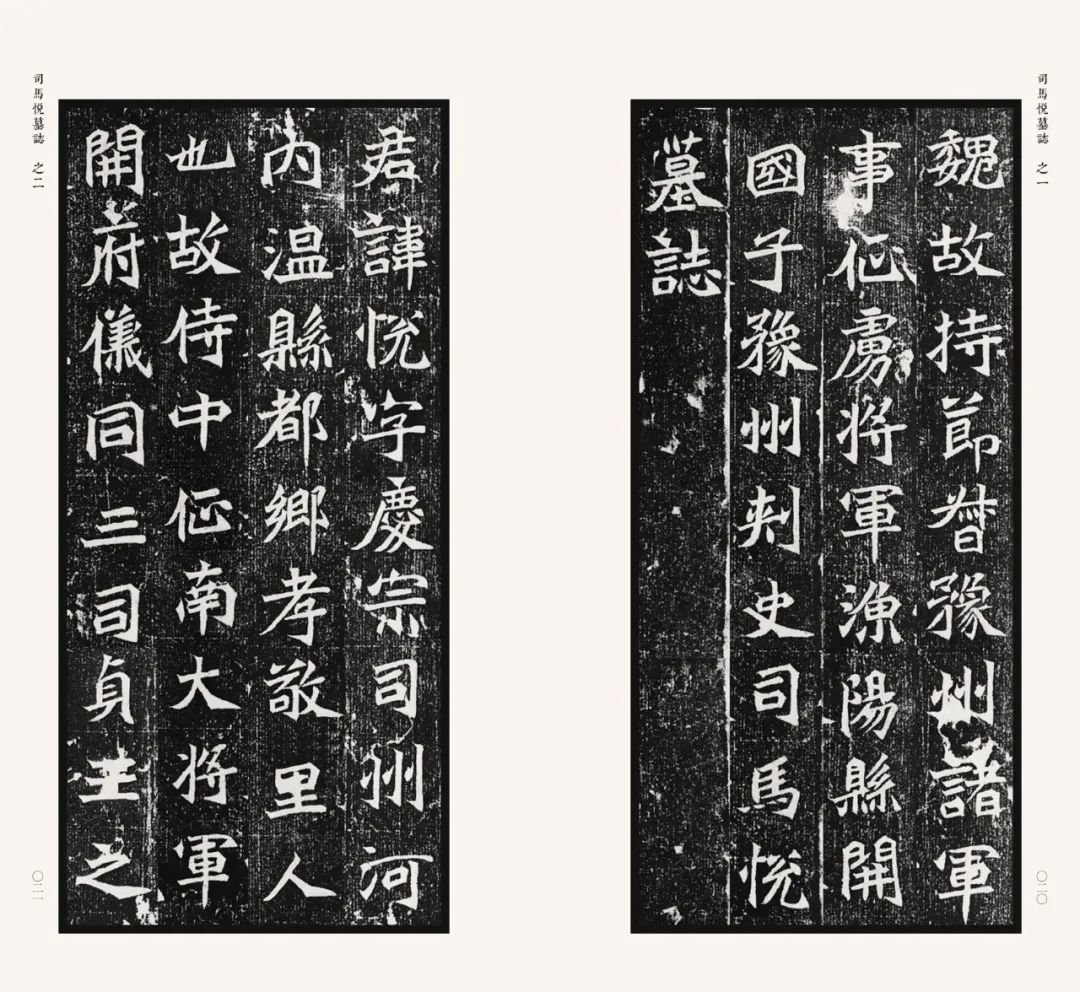 司馬悅墓誌 之一
魏故持節督豫州諸軍
事征虜將軍漁陽縣開
國子豫州刺史司馬悅
墓誌
〇二〇
司馬悅墓誌 之二
君諱悅字慶宗司州河
內溫縣都鄉孝敬里人
也故侍中征南大將軍
開府儀同三司貞王之
〇二一